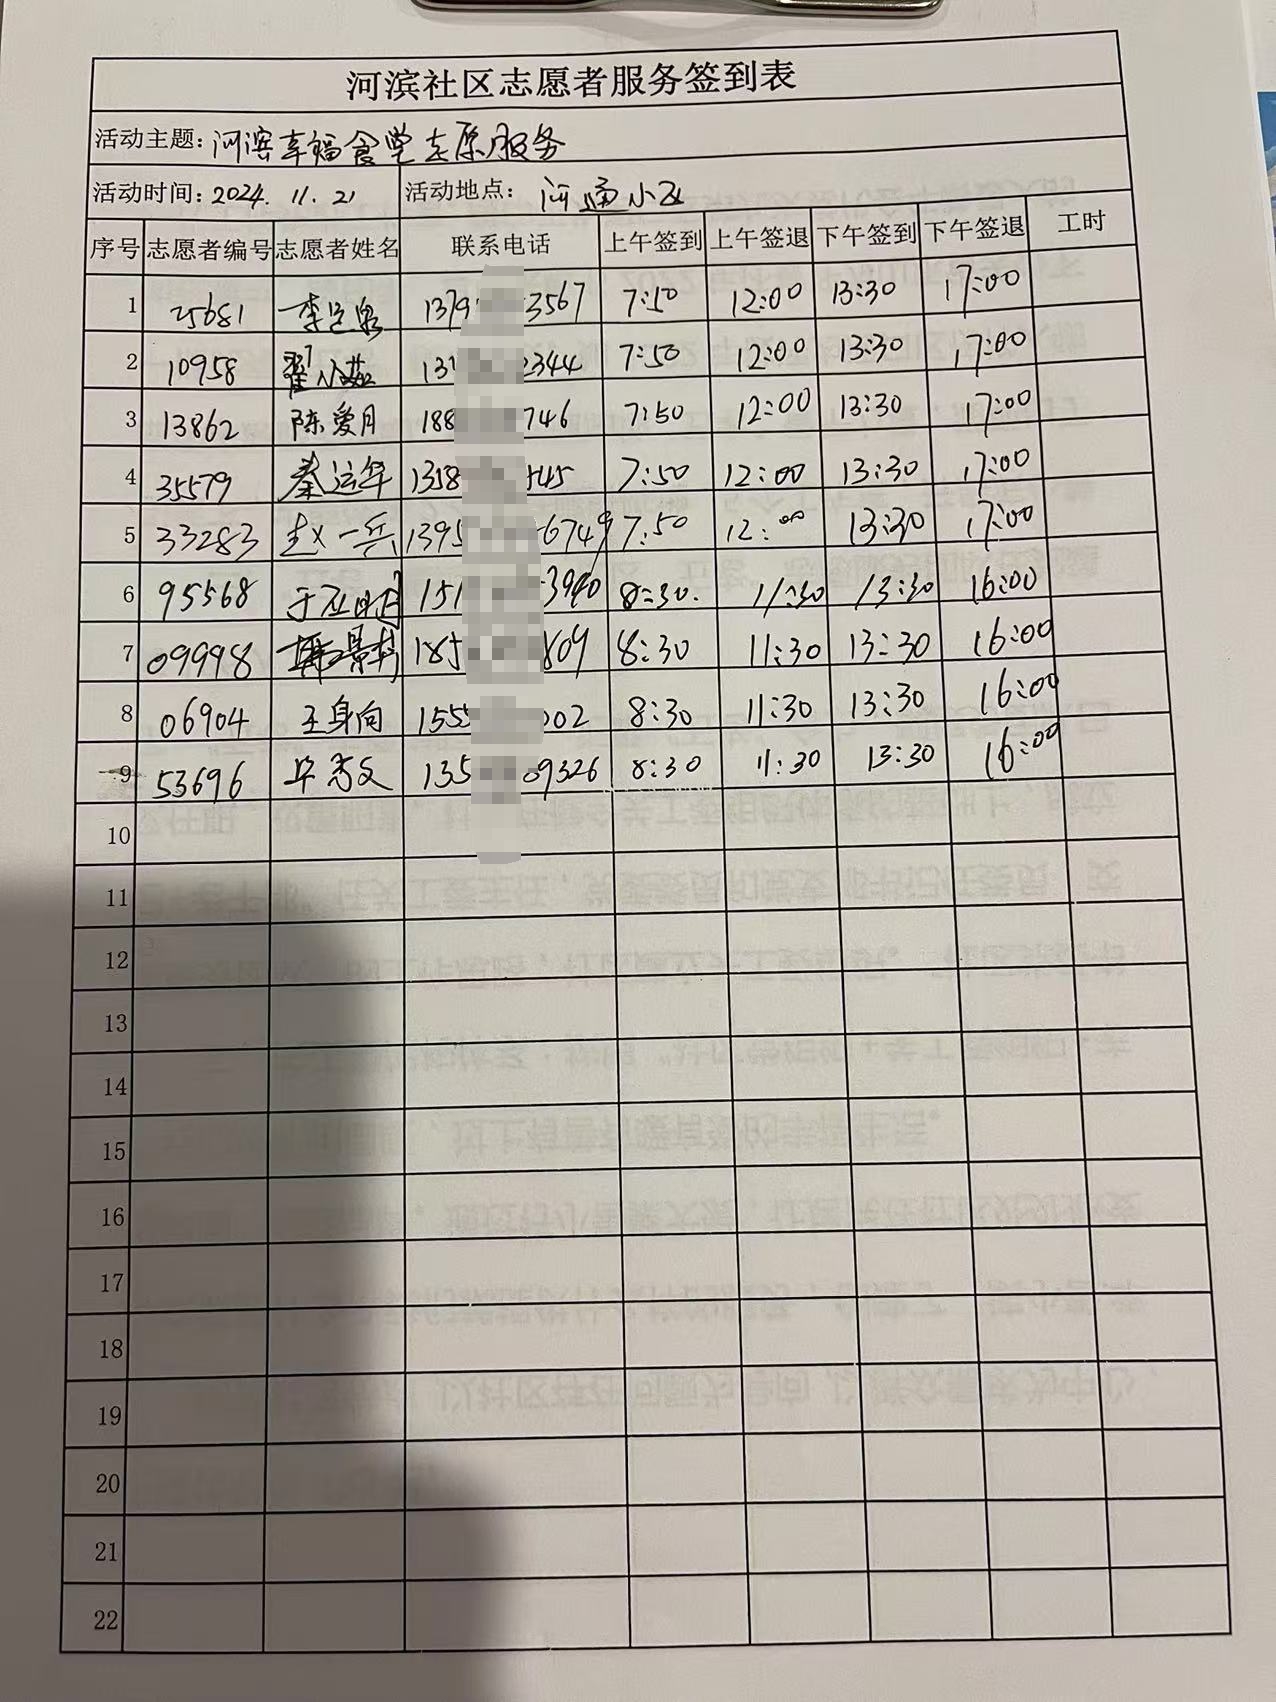 河滨社区志愿者服务签到表
活动主题：河滨幸福食堂志愿服务
活动时间：2024. 11. 21 活动地点： 河通小区
序号 志愿者编号 志愿者姓名 联系电话 上午签到 上午签退 下午签到 下午签退 工时
1 25681 李 1379 3567 7:50 12:00 13:30 17:00
2 10958 翟小茹 131 2344 7:50 12:00 13:30 17:00
3 13862 陈爱月 188 746 7:50 12:00 13:30 17:00
4 35579 秦运华 1358 545 7:50 12:00 13:30 17:00
5 33283 赵一兵 1395 6749 7:50 12:00 13:30 17:00
6 95568 于 151 3940 8:30. 11:30 13:30 16:00
7 09998 185 809 8:30 11:30 13:30 16:00
8 06904 王身向 1555 002 8:30 11:30 13:30 16:00
9 53696 毕秀文 135 09326 8:30 11:30 13:30 16:00
10
11
12
13
14
15
16
17
18
19
20
21
22